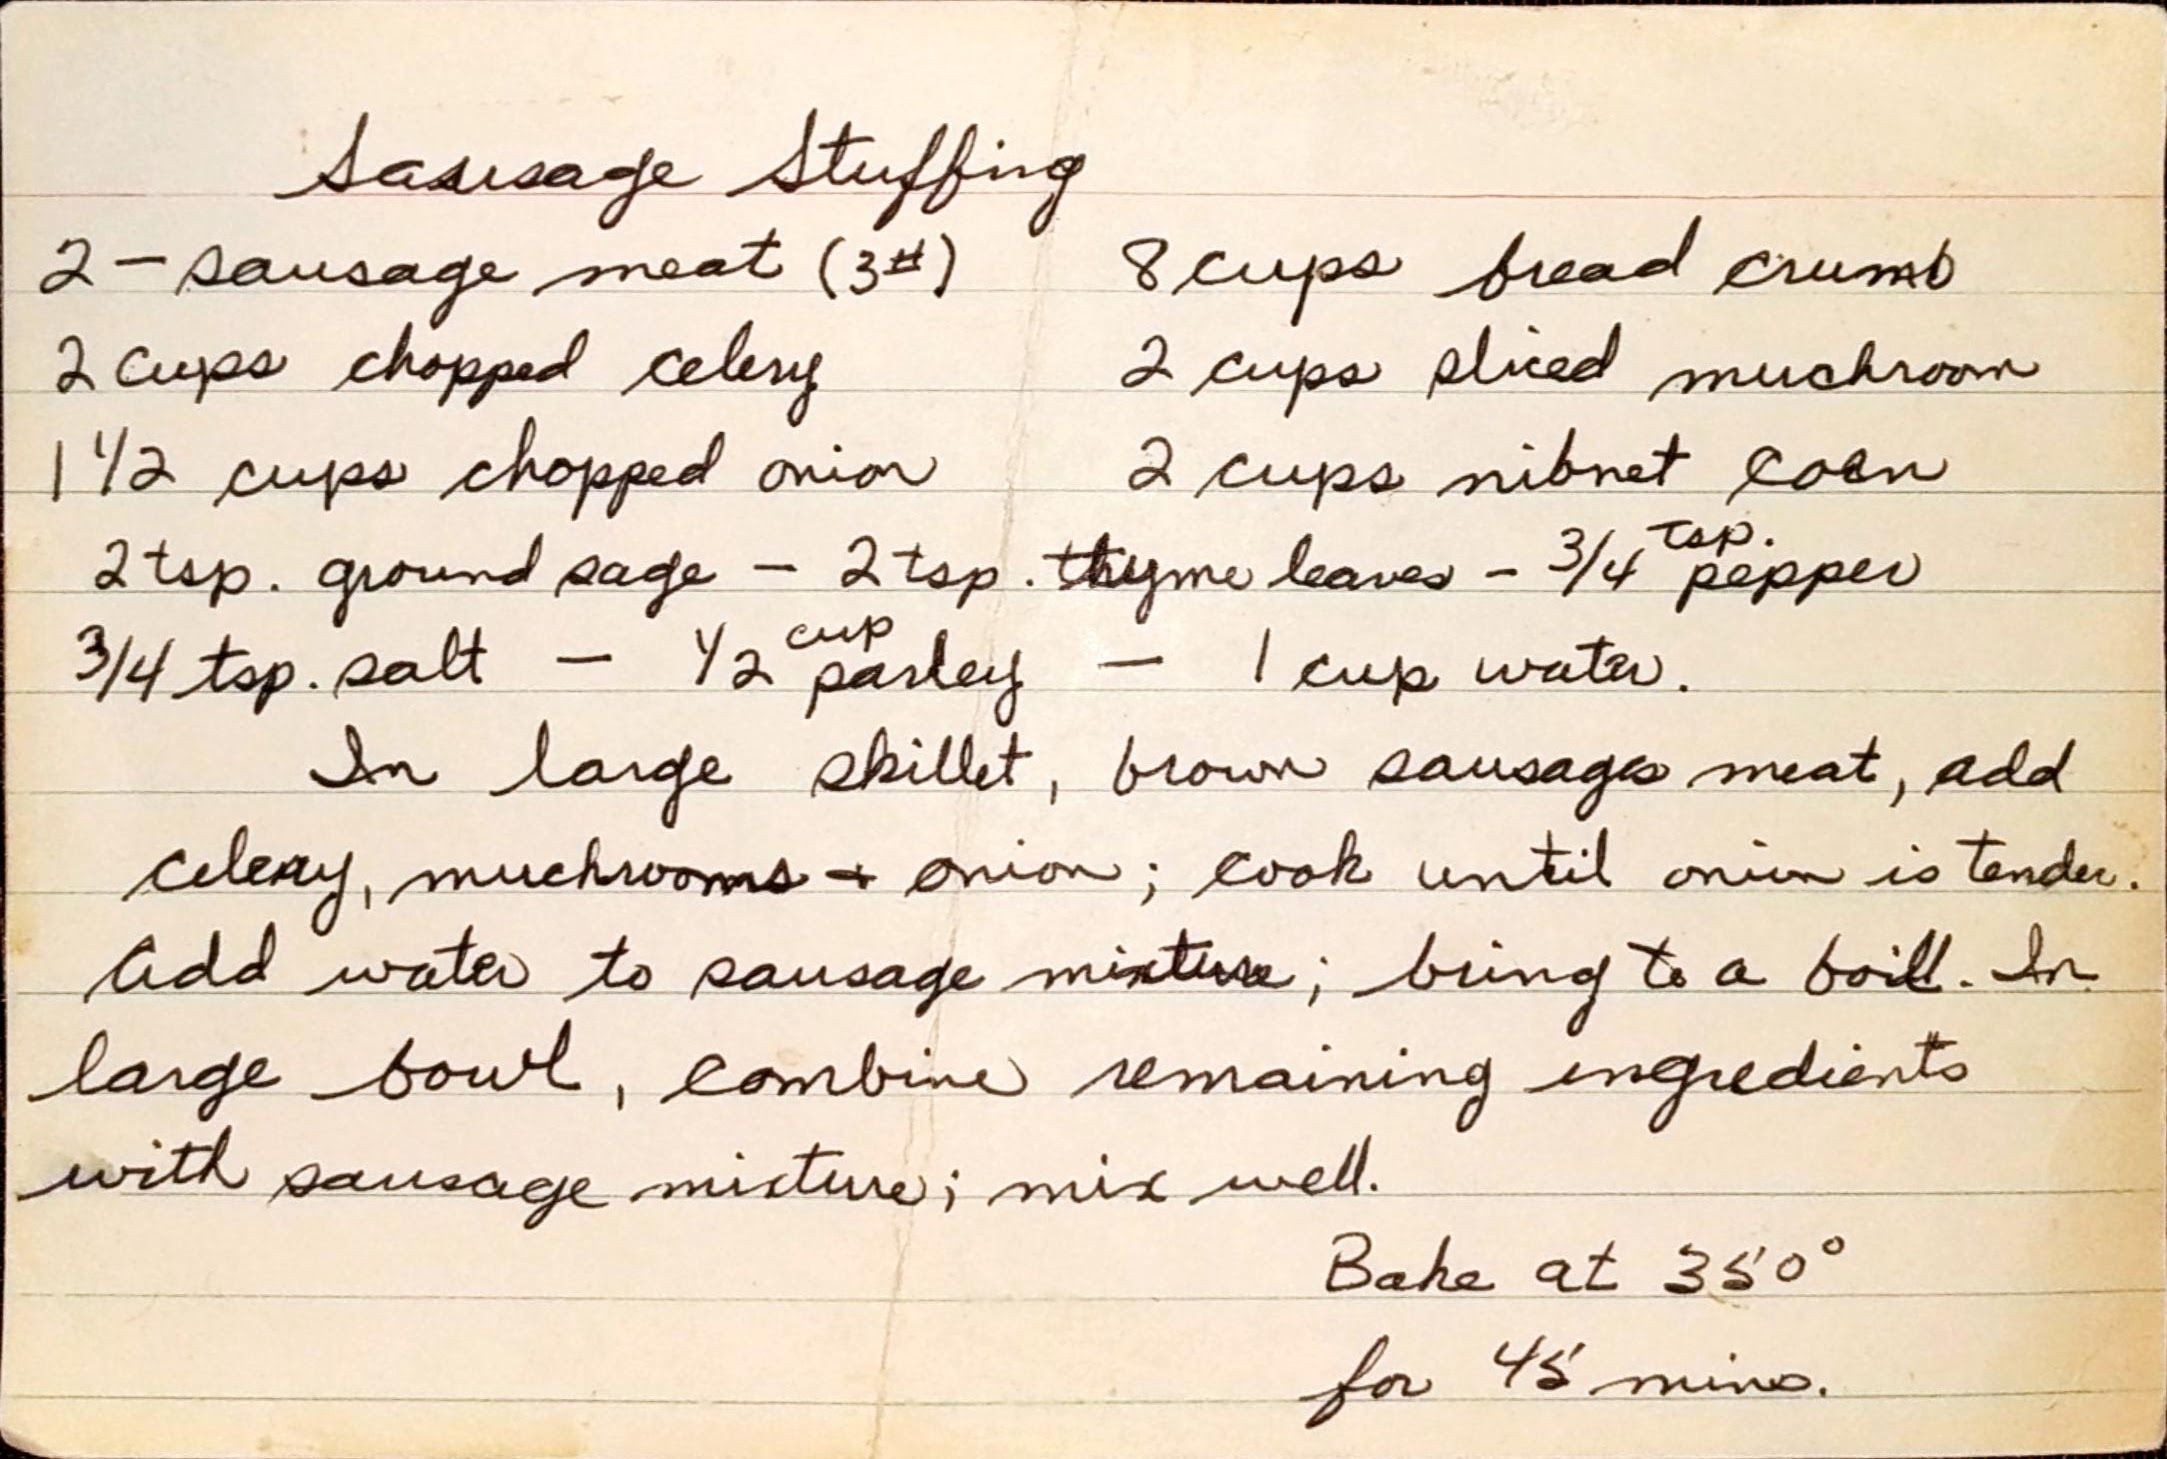 Sausage Stuffing
2 – sausage meat (3#) 8 cups bread crumb
2 cups chopped celery 2 cups sliced muchroom
1 1/2 cups chopped onion 2 cups nibnet corn
2 tsp. ground sage – 2 tsp. thyme leaves – 3/4 tsp. pepper
3/4 tsp. salt – 1/2 cup parley – 1 cup water.
In large skillet, brown sausage meat, add
celery, muchrooms + onion; cook until onion is tender.
Add water to sausage mixture; bring to a boill. In
large bowl, combine remaining ingredients
with sausage mixture; mix well.
Bake at 350°
for 45 mins.